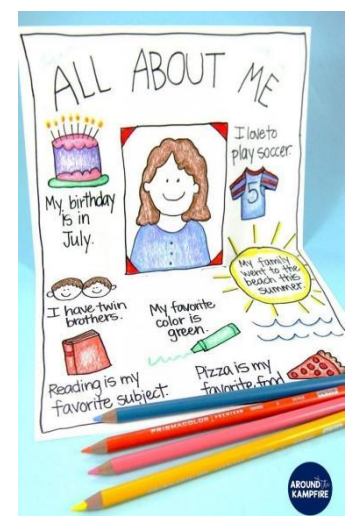 ALL ABOUT ME
I love to
play soccer.
5
My birthday
is in
July.
My family
went to the
beach this
summer.
I have twin
brothers.
My favorite
color is
green.
Reading is my
favorite subject.
Pizza is my
favorite food
PRISMACOLOR PREMIER
AROUND THE
KAMPFIRE